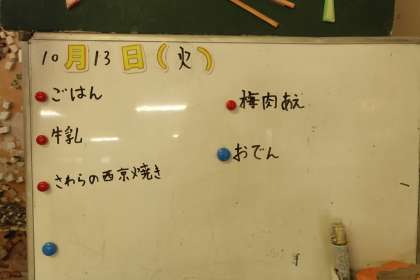 10月13日(火)
ごはん
牛乳
さわらの西京焼き
梅肉あえ
おでん